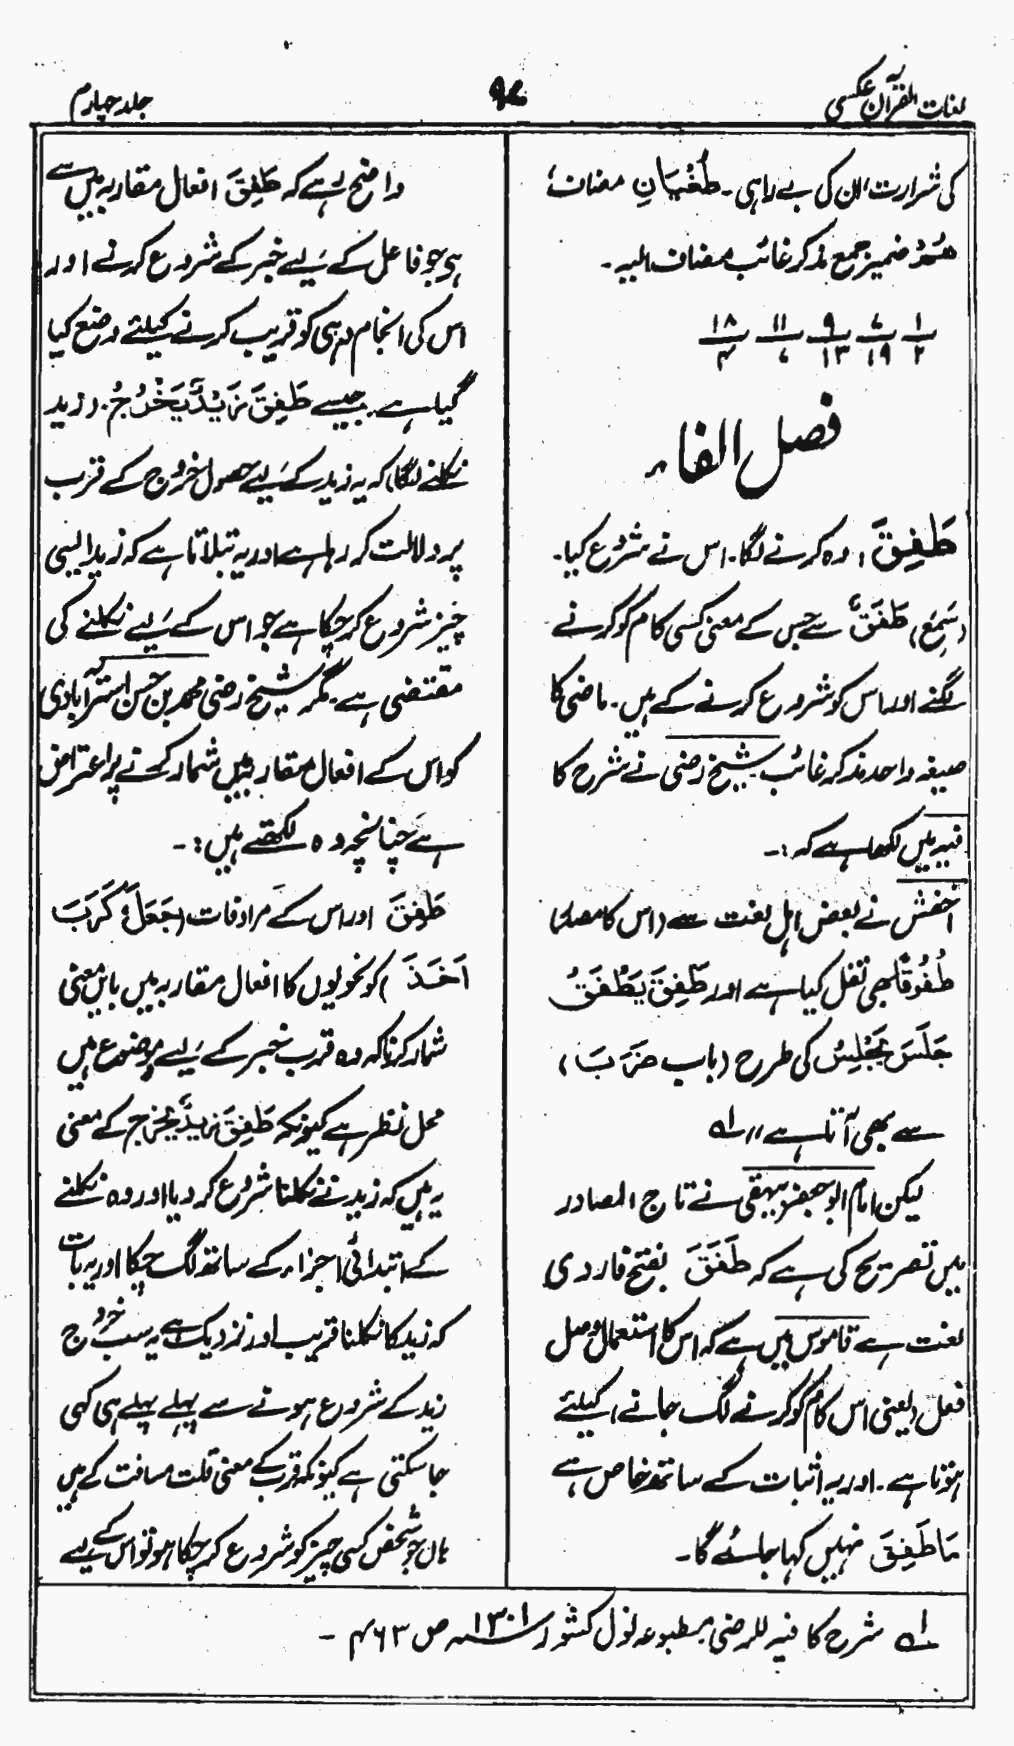 لغات القرآن عکسی
۹۷
جلد چہارم
کی شرارت، ان کی بے راہی۔ طُغْیَانِ مضاف،
ھُمْ ضمیر جمع مذکر غائب مضاف الیہ۔
۱/۲ ۷/۱۹ ۹/۱۳ ۱۱/۷ ۱۸/۴
فصل الفاء
طَفِقَ، وہ کرنے لگا۔ اس نے شروع کیا۔
(سَمِعَ) طَفَقٌ سے جس کے معنی کسی کام کو کرنے
لگنے اور اس کو شروع کرنے کے ہیں۔ ماضی کا
صیغہ واحد مذکر غائب۔ شیخ رضی نے شرح کا
فیہ میں لکھا ہے کہ :۔
اخفش نے بعض اہل لغت سے (اس کا مصدر)
طُفُوقًا بھی نقل کیا ہے اور طَفِقَ یَطْفَقُ
جَلَسَ یَجْلِسُ کی طرح (باب ضَرَبَ)
سے بھی آتا ہے،، ۱ھ
لیکن امام ابو جعفر بیہقی نے تاج المصادر
میں تصریح کی ہے کہ طَفَقَ بفتح فا ردی
لغت ہے قاموس میں ہے کہ اس کا استعمال وصل
فعل (یعنی اس کام کو کرنے لگ جانے) کیلئے
ہوتا ہے۔ اور یہ اثبات کے ساتھ خاص ہے
مَا طَفِقَ نہیں کہا جائے گا۔
واضح رہے کہ طَفِقَ افعال مقاربہ میں سے
ہی جو فاعل کے لیے خبر کے شروع کرنے اور
اس کی انجام دہی کو قریب کرنے کیلئے وضع کیا
گیا ہے۔ جیسے طَفِقَ زَیْدٌ یَخْرُجُ۔ (زید
نکلنے لگا) کہ یہ زید کے لیے حصول خروج کے قرب
پر دلالت کر رہا ہے اور یہ بتلاتا ہے کہ زید ایسی
چیز شروع کر چکا ہے جو اس کے لیے نکلنے کی
مقتضی ہے۔ مگر شیخ رضی محمد بن حسن استرآبادی
کو اس کے افعال مقاربہ میں شمار کرنے پر اعتراض
ہے چنانچہ وہ لکھتے ہیں :۔
طَفِقَ اور اس کے مرادفات (جَعَلَ، کَرَبَ
اَخَذَ) کو نحویوں کا افعال مقاربہ میں بایں معنی
شمار کرنا کہ وہ قرب خبر کے لیے موضوع ہیں
محل نظر ہے کیونکہ طَفِقَ زیدٌ یخرج کے معنی
یہ ہیں کہ زید نے نکلنا شروع کر دیا اور وہ نکلنے
کے ابتدائی اجزاء کے ساتھ لگ چکا اور یہ بات
کہ زید کا نکلنا قریب اور نزدیک ہے یہ سب خروج
زید کے شروع ہونے سے پہلے پہلے ہی کہی
جا سکتی ہے کیونکہ قرب کے معنی قلت مسافت کے ہیں
ہاں جو شخص کسی چیز کو شروع کر چکا ہو تو اس کے لیے
۱ھ شرح کا فیہ للرضی مطبوعہ نول کشور ۱۳۰۱ سنہ ص ۴۶۳ ۔